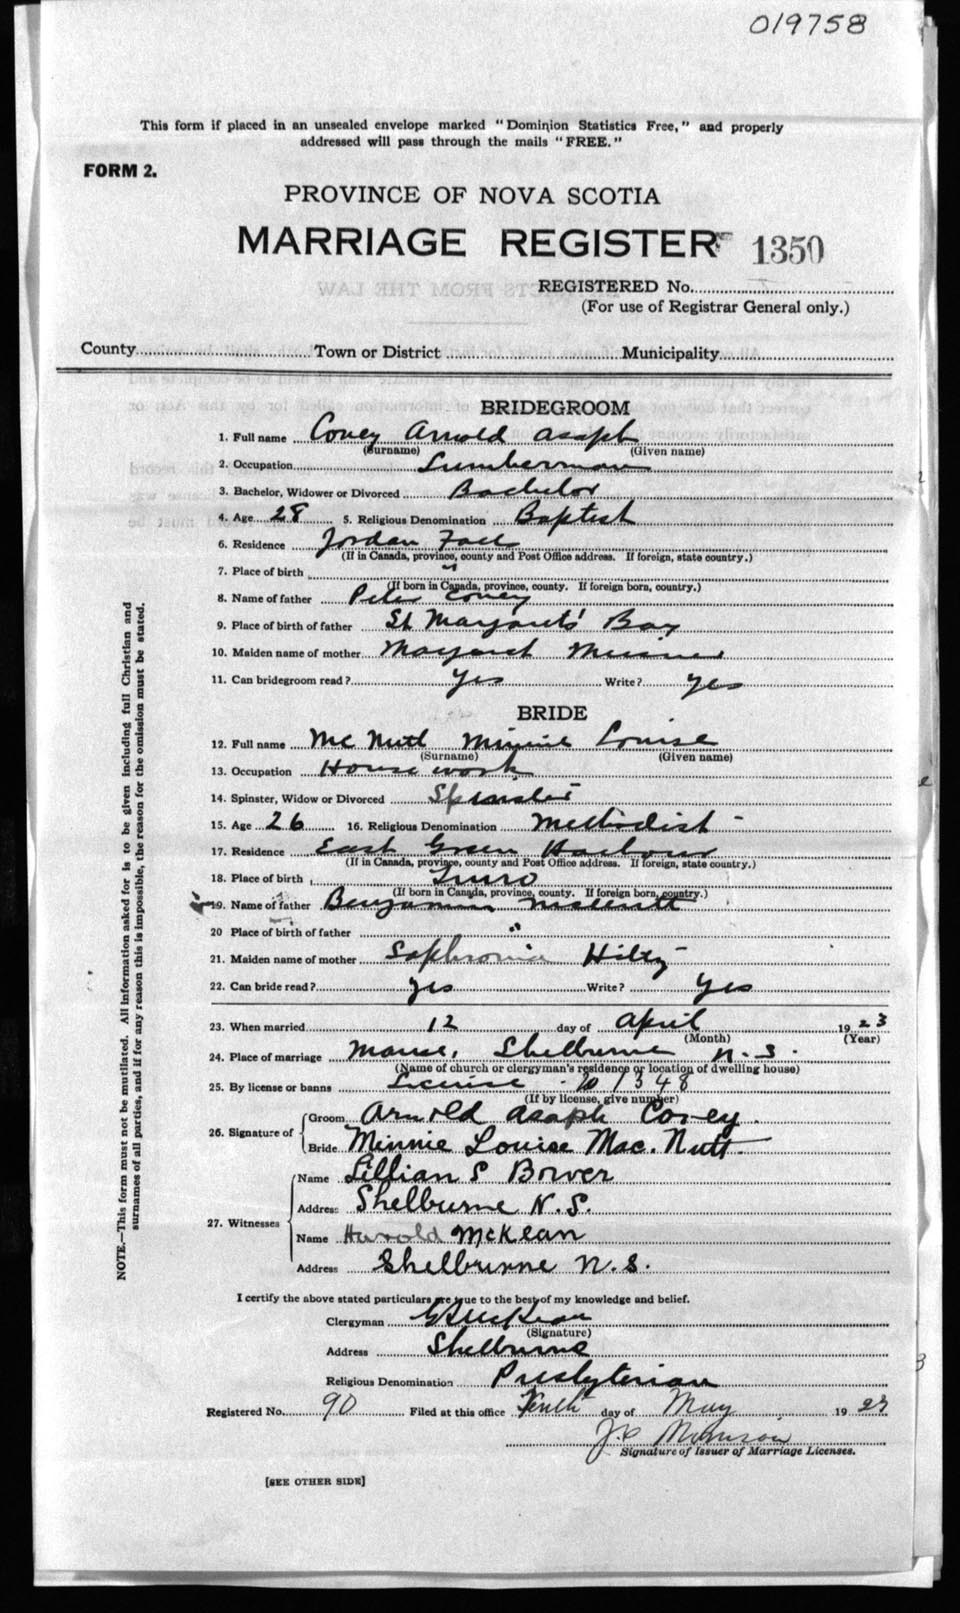 019758
This form if placed in an unsealed envelope marked "Dominion Statistics Free," and properly
addressed will pass through the mails "FREE."
FORM 2.
PROVINCE OF NOVA SCOTIA
MARRIAGE REGISTER 1350
REGISTERED No.
(For use of Registrar General only.)
County Town or District Municipality
BRIDEGROOM
1. Full name Covey Arnold Asaph
(Surname) (Given name)
2. Occupation Lumberman
3. Bachelor, Widower or Divorced Bachelor
4. Age 28 5. Religious Denomination Baptist
6. Residence Jordan Fall
(If in Canada, province, county and Post Office address. If foreign, state country.)
7. Place of birth "
(If born in Canada, province, county. If foreign born, country.)
8. Name of father Peter Covey
9. Place of birth of father St Margarets' Bay
10. Maiden name of mother Margaret
11. Can bridegroom read? Yes Write? Yes
BRIDE
12. Full name McNutt Minnie Louise
(Surname) (Given name)
13. Occupation House work
14. Spinster, Widow or Divorced Spinster
15. Age 26 16. Religious Denomination Methodist
17. Residence East Green Harbour
(If in Canada, province, county and Post Office address. If foreign, state country.)
18. Place of birth Truro
(If born in Canada, province, county. If foreign born, country.)
19. Name of father Benjamin McNutt
20 Place of birth of father "
21. Maiden name of mother Sophronia Hilty
22. Can bride read? Yes Write? Yes
23. When married 12 day of April 1923
(Month) (Year)
24. Place of marriage Manse, Shelburne N.S.
(Name of church or clergyman's residence or location of dwelling house)
25. By license or banns License No 1348
(If by license, give number)
26. Signature of Groom Arnold Asaph Covey.
Bride Minnie Louise Mac.Nutt.
27. Witnesses Name Lillian S Bower
Address Shelburne N.S.
Name Harold McKean
Address Shelburne N.S.
I certify the above stated particulars are true to the best of my knowledge and belief.
Clergyman McKean
(Signature)
Address Shelburne
Religious Denomination Presbyterian
Registered No. 90 Filed at this office Tenth day of May 1923
J.C. Morrison
Signature of Issuer of Marriage Licenses.
[SEE OTHER SIDE]
NOTE.—This form must not be mutilated. All information asked for is to be given including full Christian and
surnames of all parties, and if for any reason this is impossible, the reason for the omission must be stated.